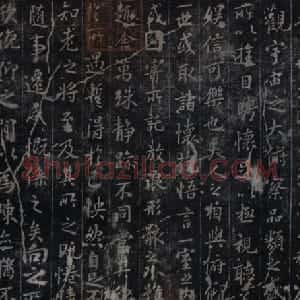 觀宇宙之大俯察品類之盛
所以遊目騁懷足以極視聽
娛信可樂也夫人之相與俯
一世或取諸懷抱悟言一室之內
或因寄所託放浪形骸之外雖
趣舍萬殊靜躁不同當其
於所遇蹔得於己怏然自足不
知老之將至及其所之既惓
隨事遷感慨係之矣向之所
俛仰之間以為陳迹猶不
Shufaziliao.com